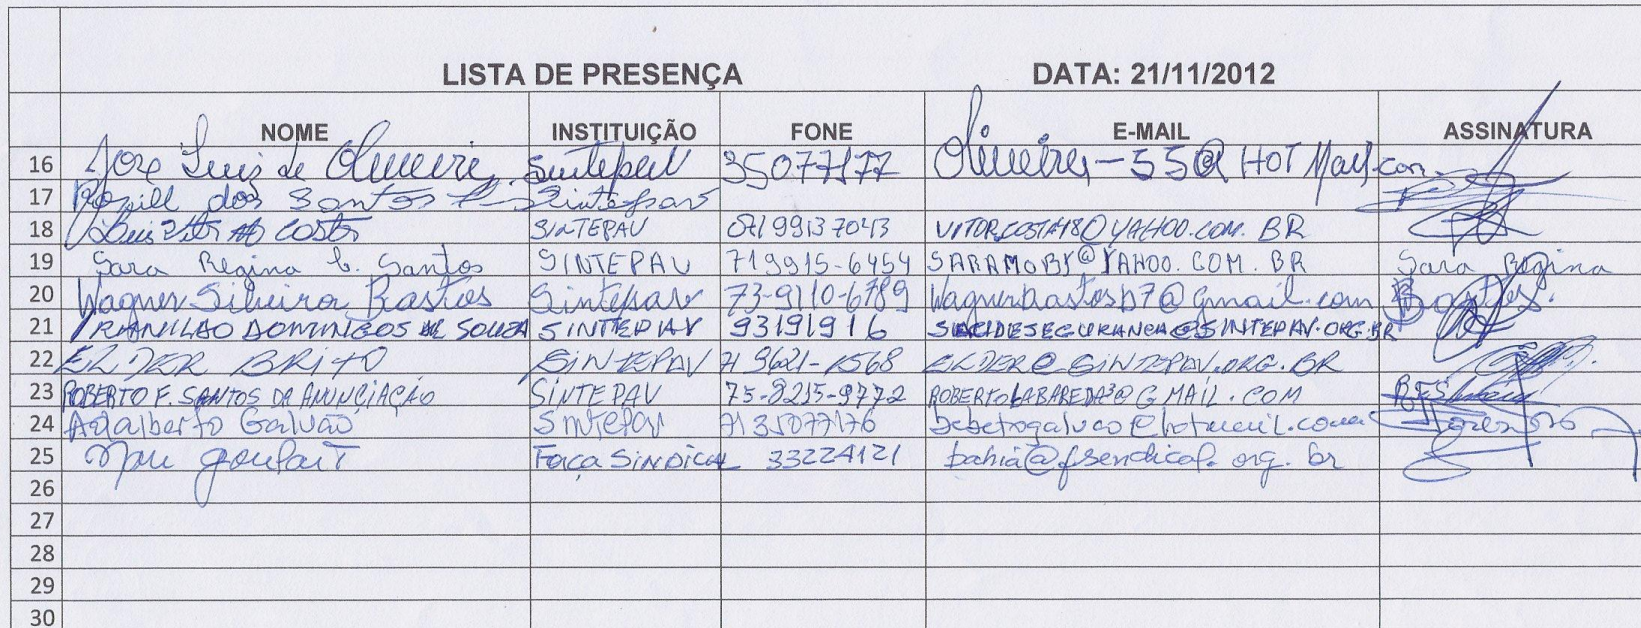 LISTA DE PRESENÇA DATA: 21/11/2012
NOME INSTITUIÇÃO FONE E-MAIL ASSINATURA
16 Jose Luis de Oliveira Sintepav 35077177 Oliveira-55@HOTMail.com
17 dos Santos Sintepav
18 Costa SINTEPAV 071 99137043 VITORCOSTA18@YAHOO.COM.BR
19 Sara Regina C. Santos SINTEPAV 719915-6454 SARAMOBS@YAHOO.COM.BR Sara Regina
20 Wagner Silveira Bastos Sintepav 73-9110-6789 Wagnerbastos07@gmail.com Bastos.
21 IRANILDO DOMINGOS DE SOUZA SINTEPAV 93191916 @SINTEPAV.ORG.BR
22 ELDER BRITO SINTEPAV 71 9621-1568 ELDER@SINTEPAV.ORG.BR
23 ROBERTO F. SANTOS DA ANUNCIAÇÃO SINTEPAV 75-8215-9772 ROBERTOLABAREDA3@GMAIL.COM
24 Adalberto Galvão Sintepav 7135077176 bebetogalvao@hotmail.com
25 goulart Força SINDICAL 33224121 bahia@fsindical.org.br
26
27
28
29
30